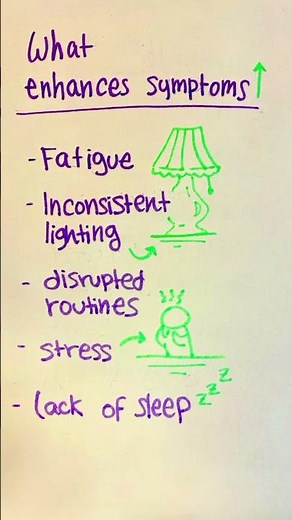 What
enhances symptoms ↑
- Fatigue
- Inconsistent
lighting
- disrupted
routines
- stress
- lack of sleep zzz